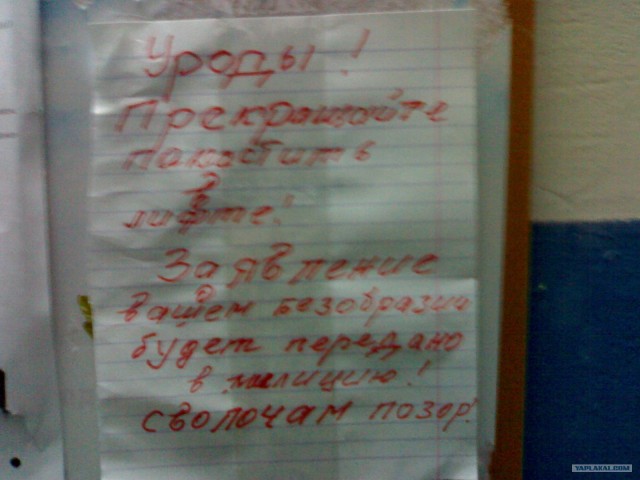 Уроды!
Прекращайте
пакостить
в
лифте!
Заявление
о
вашем безобразии
будет передано
в милицию!
сволочам позор!
YAPLAKAL.COM